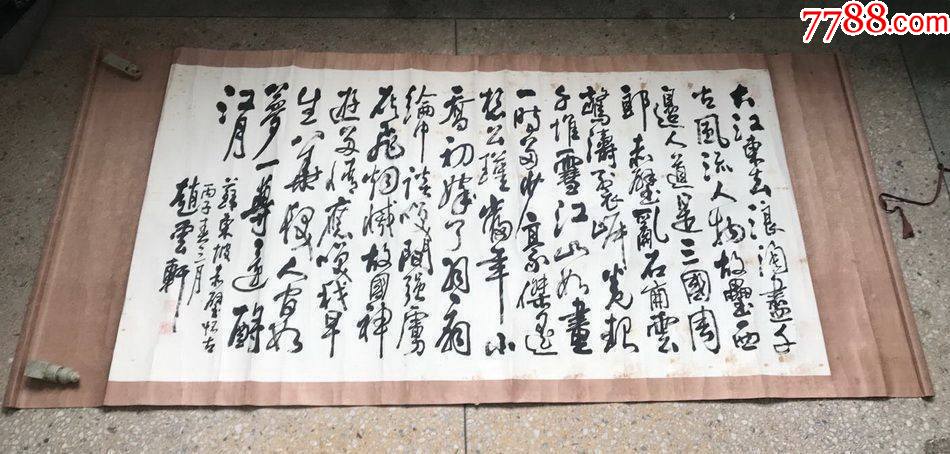 7788.com
大江東去浪淘盡千
古風流人物故壘西
邊人道是三國周
郎赤壁亂石崩雲
驚濤裂岸卷起
千堆雪江山如畫
一時多少豪傑遙
想公瑾當年小
喬初嫁了羽扇
綸巾談笑間強虜
灰飛烟滅故國神
遊多情應笑我早
生華髮人如
夢一尊還酹
江月
蘇東坡赤壁懷古
丙子春三月
趙雲軒